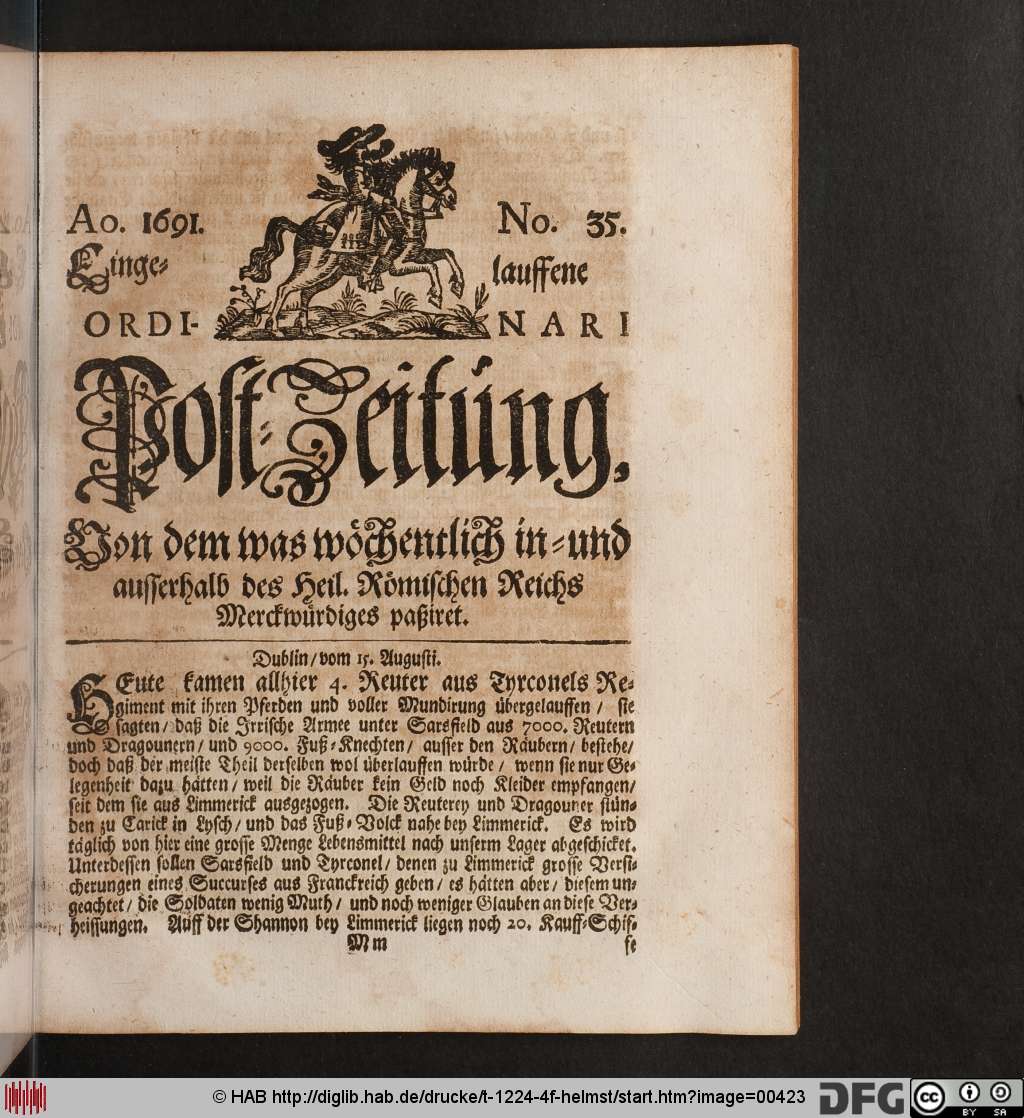 Ao. 1691. No. 35.
Einge- lauffene
ORDI- NARI
Post-Zeitung,
Von dem was wöchentlich in- und
ausserhalb des Heil. Römischen Reichs
Merckwürdiges paßiret.
Dublin/ vom 15. Augusti.
HEute kamen allhier 4. Reuter aus Tyrconels Re-
giment mit ihren Pferden und voller Mundirung übergelauffen/ sie
sagten/ daß die Irrische Armee unter Sarsfield aus 7000. Reutern
und Dragounern/ und 9000. Fuß-Knechten/ ausser den Räubern/ bestehe/
doch daß der meiste Theil derselben wol überlauffen würde/ wenn sie nur Ge-
legenheit dazu hätten/ weil die Räuber kein Geld noch Kleider empfangen/
seit dem sie aus Limmerick ausgezogen. Die Reuterey und Dragouner stün-
den zu Carick in Lysch/ und das Fuß-Volck nahe bey Limmerick. Es wird
täglich von hier eine grosse Menge Lebensmittel nach unserm Lager abgeschicket.
Unterdessen sollen Sarsfield und Tyrconel/ denen zu Limmerick grosse Versi-
cherungen eines Succurses aus Franckreich geben/ es hätten aber/ diesem un-
geachtet/ die Soldaten wenig Muth/ und noch weniger Glauben an diese Ver-
heissungen. Auff der Shannon bey Limmerick liegen noch 20. Kauff-Schif-
Mm fe
© HAB http://diglib.hab.de/drucke/t-1224-4f-helmst/start.htm?image=00423
DFG
cc
BY SA